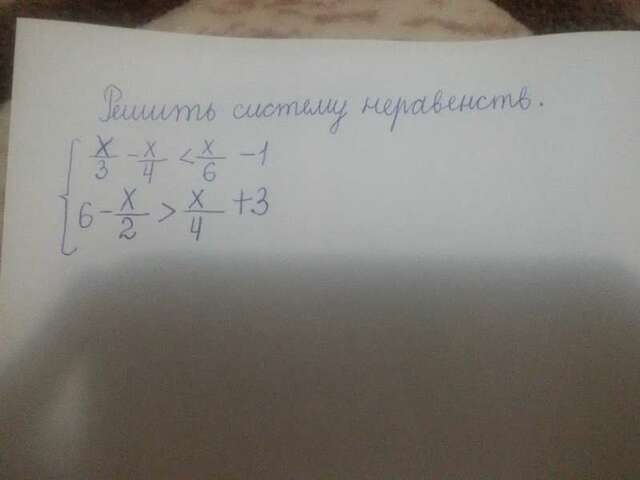 Решить систему неравенств.
x/3 - x/4 < x/6 - 1
6 - x/2 > x/4 + 3